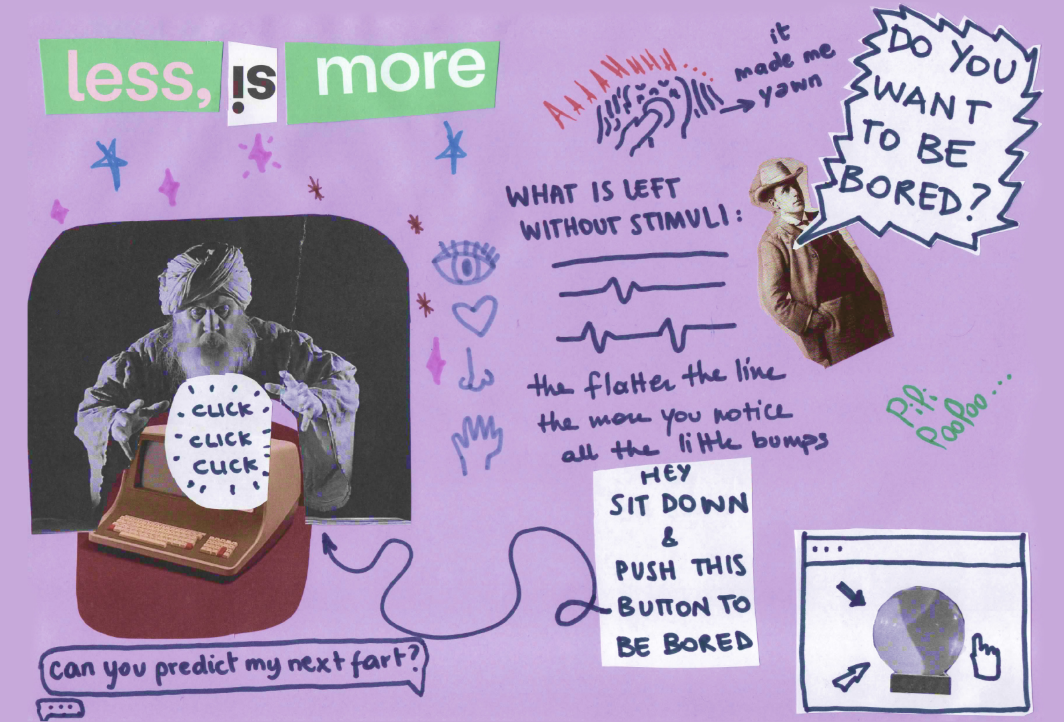 less, is more
AAAAHHHH....
it
made me
yawn
DO YOU
WANT
TO BE
BORED?
WHAT IS LEFT
WITHOUT STIMULI:
the flatter the line
the more you notice
all the little bumps
Pi.Pi
PooPoo...
CLICK
CLICK
CLICK
HEY
SIT DOWN
&
PUSH THIS
BUTTON TO
BE BORED
can you predict my next fart?